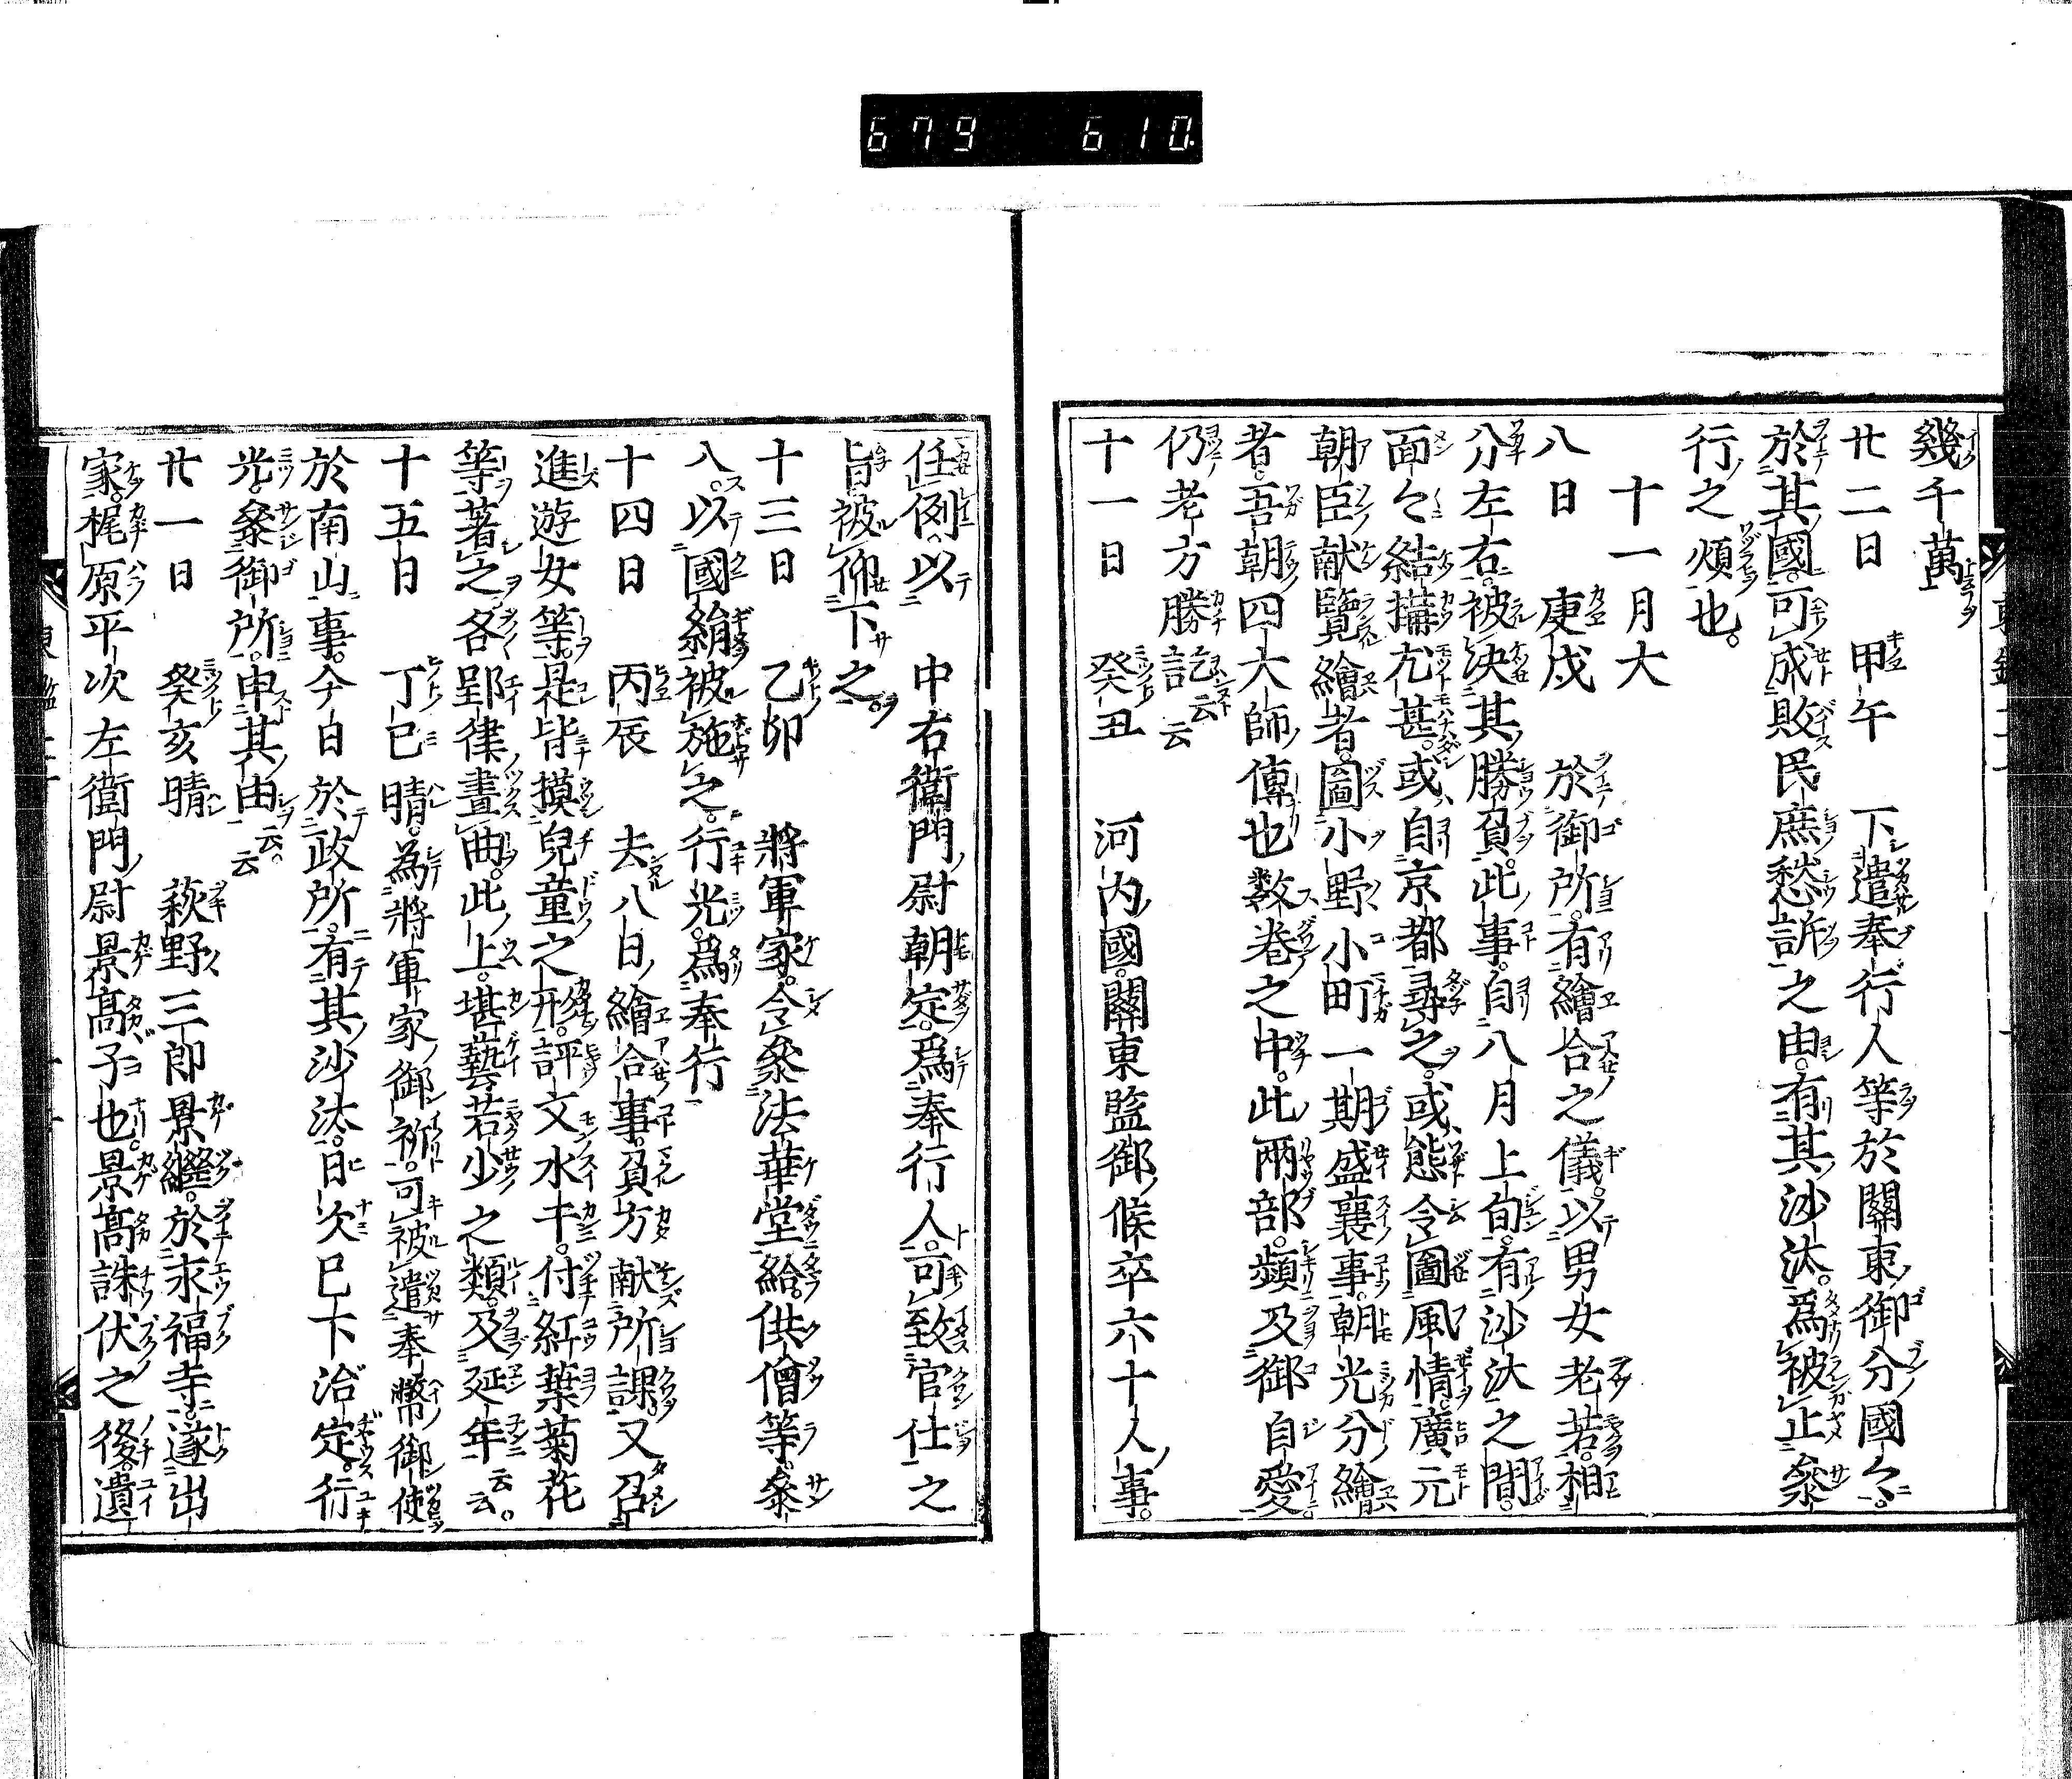 679 610
幾千萬
廿二日 甲午 下遣奉行人等於關東御分國々
於其國可成敗民庶愁訴之由有其沙汰爲被止參
行之煩也
十一月大
八日 庚戌 於御所有繪合之儀以男女老若相
分左右被決其勝負此事自八月上旬有沙汰之間
面々結搆尤甚或自京都尋之或態令圖風情廣元
朝臣献覽繪者圖小野小町一期盛衰事朝光分繪
者吾朝四大師傳也数卷之中此兩部頻及御自愛
仍老方勝訖云云
十一日 癸丑 河内國關東監御候卒六十人事
任例以 中右衞門尉朝定爲奉行人可致官仕之
旨被仰下之
十三日 乙卯 將軍家令參法華堂給供僧等參
八以國絹被施之行光爲奉行
十四日 丙辰 去八日繪合事負方献所課又召
進遊女等是皆摸兒童之形評文水干付紅葉菊花
等著之各郢律盡曲此上堪藝若少之類及延年云云
十五日 丁巳 晴爲將軍家御祈可被遣奉幣御使
於南山事今日於政所有其沙汰日次巳下治定行
光參御所申其由云云
廿一日 癸亥 晴 萩野三郎景繼於永福寺遂出
家梶原平次左衞門尉景高子也景高誅伏之後遺